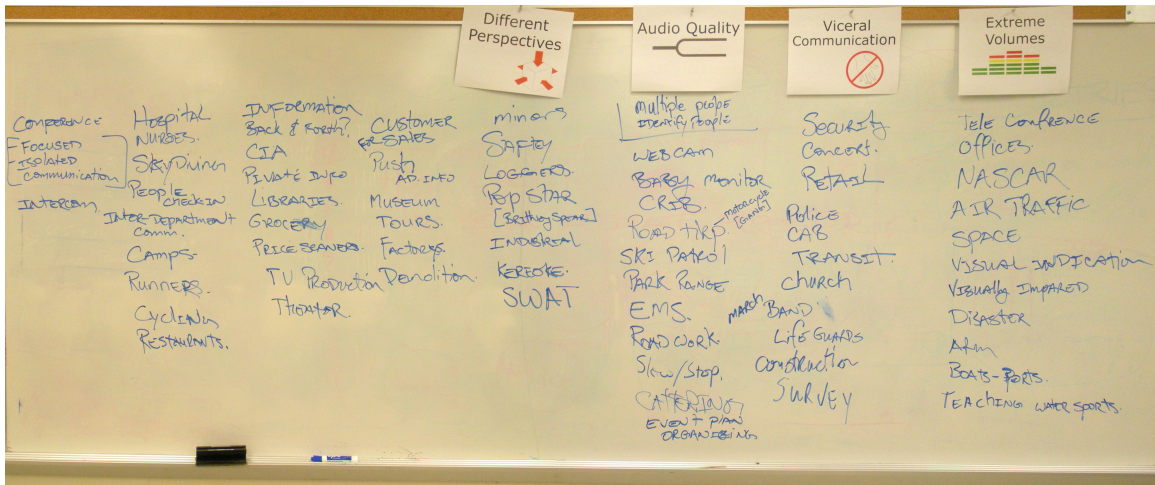 Different
Perspectives
Audio Quality
Viceral
Communication
Extreme
Volumes
CONFERENCE
- FOCUSED
- ISOLATED
communication
INTERCOM
HOSPITAL
NURSES.
SkyDiving
PEOPLE
CHECK-IN
INTER-DEPARTMENT
comm.
CAMPS.
RUNNERS.
CYCLING
RESTAURANTS.
INFORMATION
BACK & FORTH?
CIA
PIVATE INFO
LIBRARIES.
GROCERY
PRICE SCANERS.
TV PRODUCTION
THEATER
CUSTOMER
FOR SALES
Push
AD. INFO
MUSEUM
TOURS.
FACTORYS.
Demolition.
miners
SAFTEY
LOGGERS.
POP STAR
[Brittney Spears]
INDUSTRIAL
KEREOKE.
SWAT
multiple people
IDENTIFY PEOPLE
WEBCAM
BABY monitor
CRIB.
ROAD trips.
MOTORCYCLE
[GANG]
SKI PATROL
PARK RANGE
EMS.
ROAD WORK.
Slow/Stop.
CATTERING
EVENT PLAN
ORGANIZING
SECURITY
CONCERT.
RETAIL
POLICE
CAB
TRANSIT.
church
MARCH BAND
LifE GUARDS
construction
SURVEY
TELE CONFRENCE
OFFICES.
NASCAR
AIR TRAFFIC
SPACE
VISUAL INDICATION
VISUALLY IMPARED
DISASTER
BOATS-PORTS.
TEACHING WATER SPORTS.